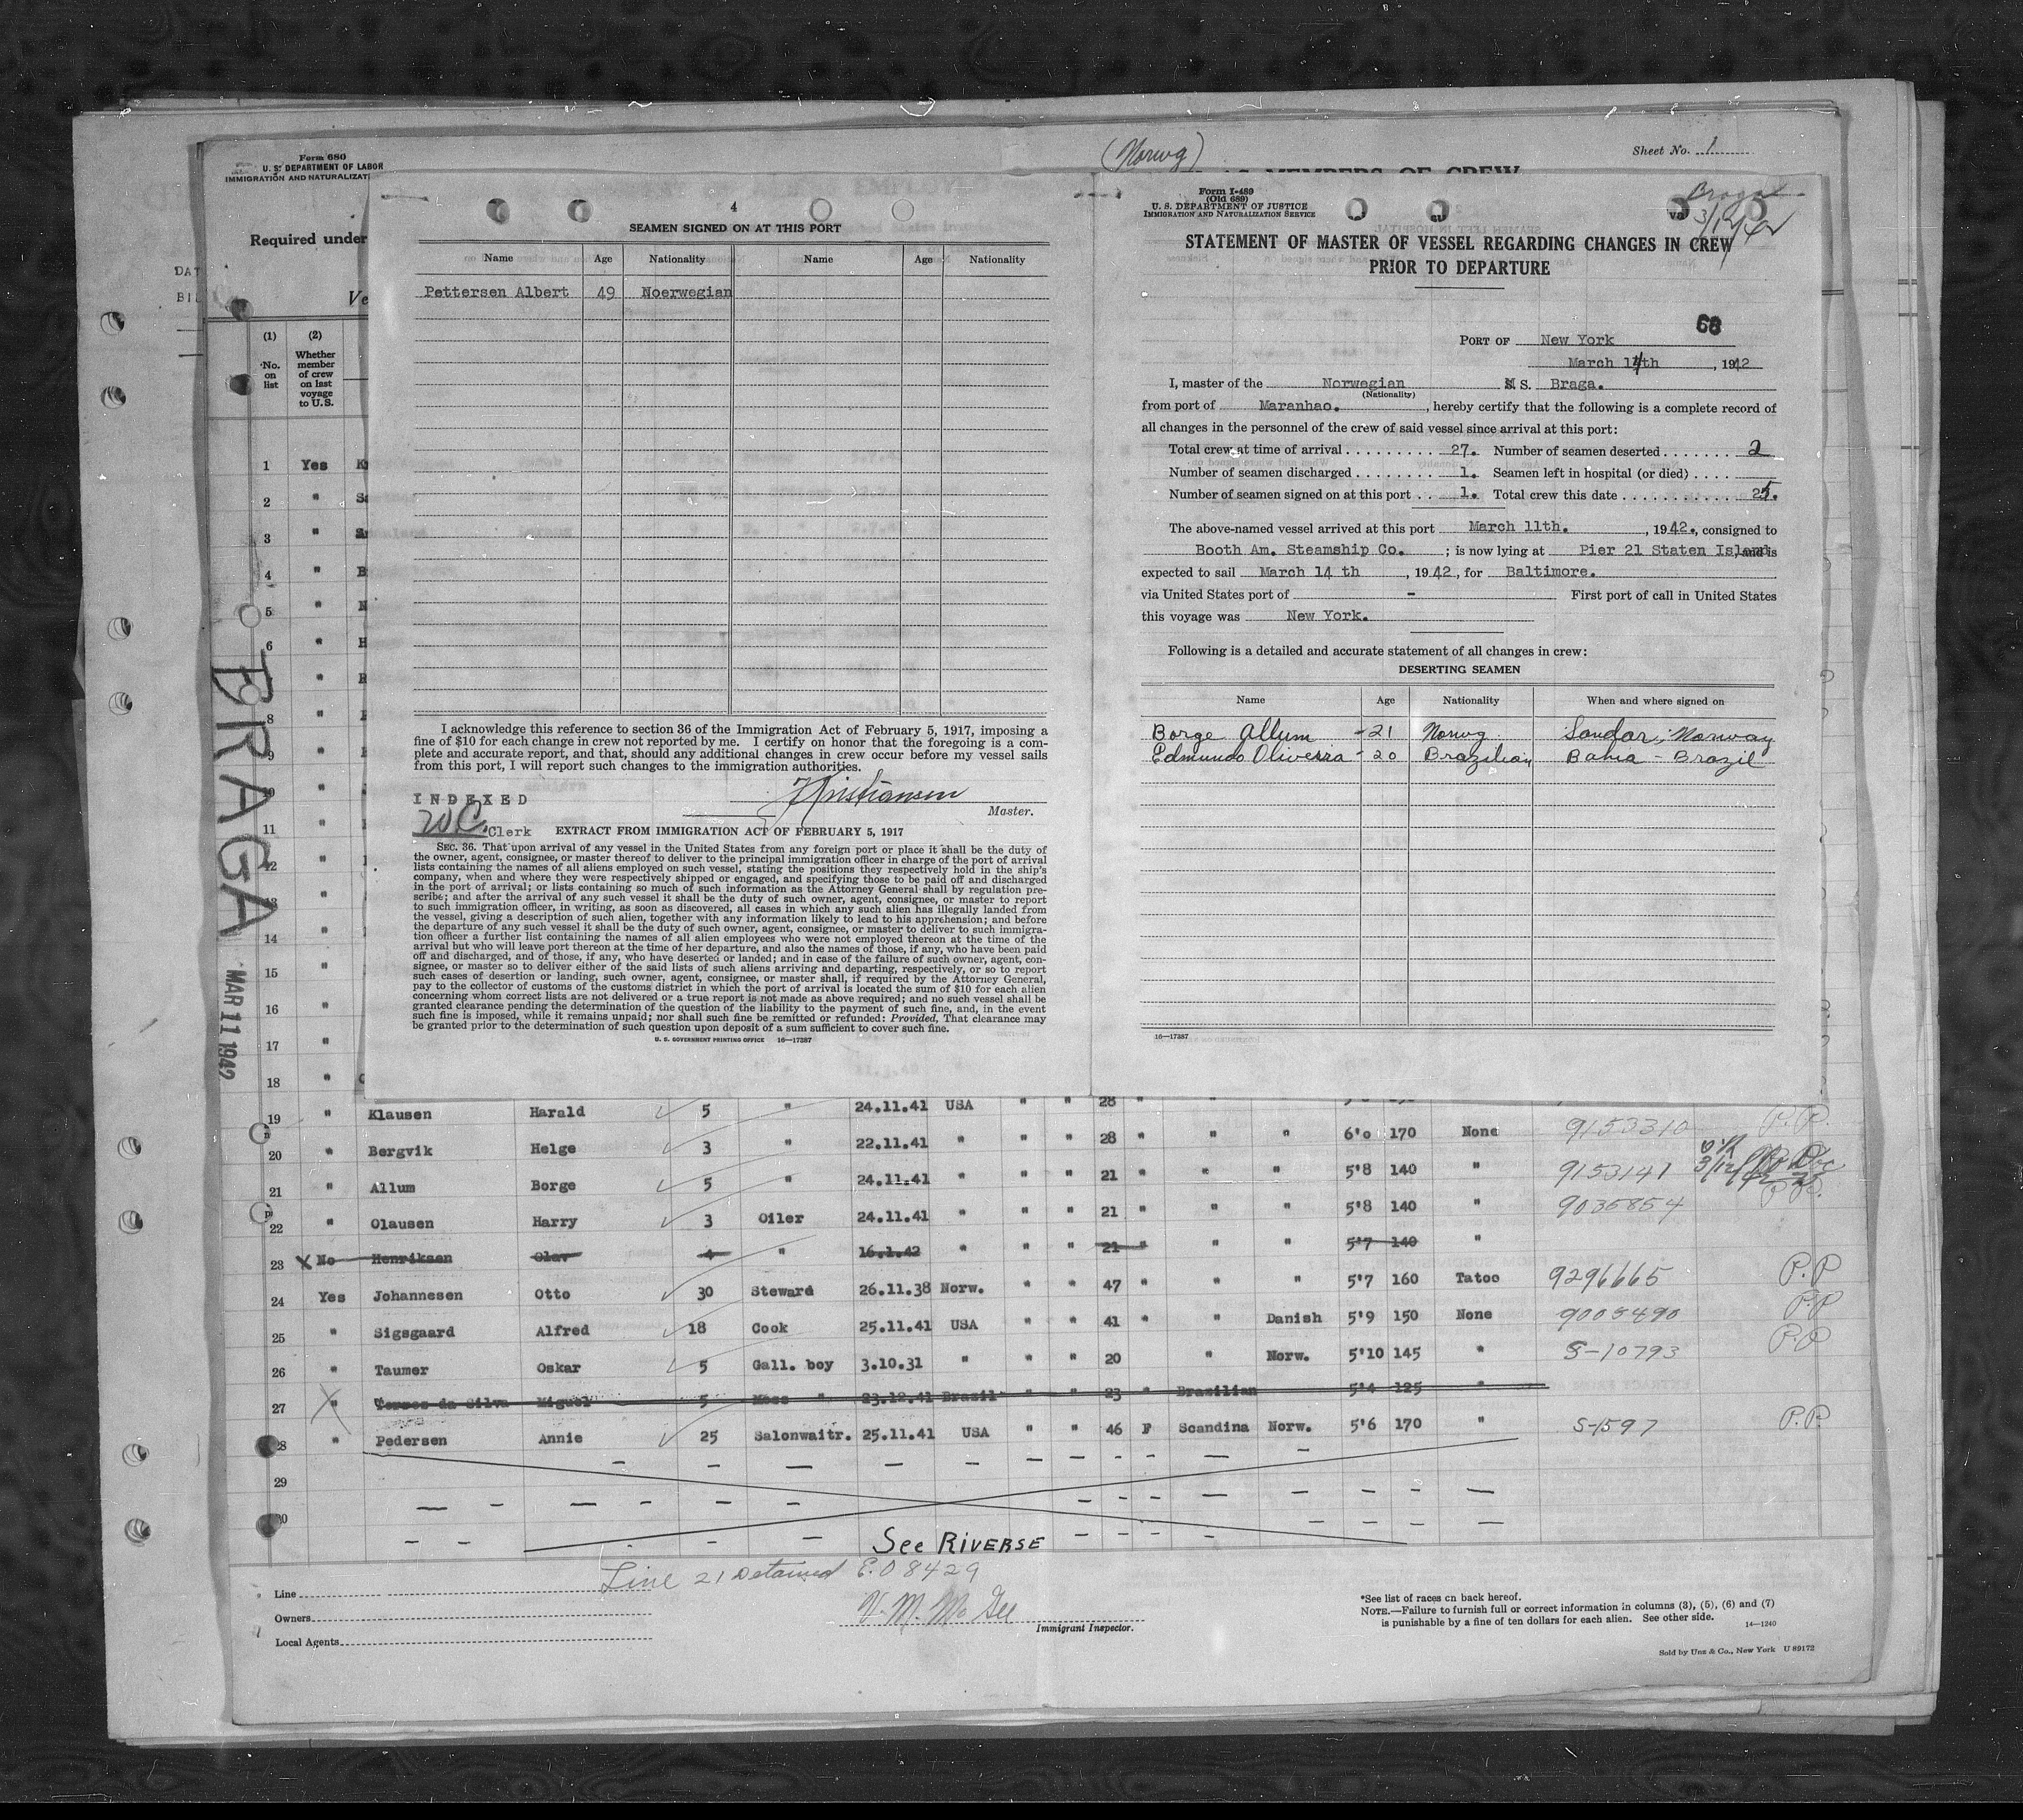 (Norwg)
Sheet No. 1
Form 680
U. S. DEPARTMENT OF LABOR
IMMIGRATION AND NATURALIZAT
AS MEMBERS OF CREW
Required under
DAT
BIL
Ve
(1)
No. on list
(2)
Whether member of crew on last voyage to U.S.
BRAGA
MAR 11 1942
4
SEAMEN SIGNED ON AT THIS PORT
Name Age Nationality Name Age Nationality
Pettersen Albert 49 Noerwegian
I acknowledge this reference to section 36 of the Immigration Act of February 5, 1917, imposing a
fine of $10 for each change in crew not reported by me. I certify on honor that the foregoing is a com-
plete and accurate report, and that, should any additional changes in crew occur before my vessel sails
from this port, I will report such changes to the immigration authorities.
Kristiansen
Master.
INDEXED
WC. Clerk
EXTRACT FROM IMMIGRATION ACT OF FEBRUARY 5, 1917
SEC. 36. That upon arrival of any vessel in the United States from any foreign port or place it shall be the duty of
the owner, agent, consignee, or master thereof to deliver to the principal immigration officer in charge of the port of arrival
lists containing the names of all aliens employed on such vessel, stating the positions they respectively hold in the ship's
company, when and where they were respectively shipped or engaged, and specifying those to be paid off and discharged
in the port of arrival; or lists containing so much of such information as the Attorney General shall by regulation pre-
scribe; and after the arrival of any such vessel it shall be the duty of such owner, agent, consignee, or master to report
to such immigration officer, in writing, as soon as discovered, all cases in which any such alien has illegally landed from
the vessel, giving a description of such alien, together with any information likely to lead to his apprehension; and before
the departure of any such vessel it shall be the duty of such owner, agent, consignee, or master to deliver to such immigra-
tion officer a further list containing the names of all alien employees who were not employed thereon at the time of the
arrival but who will leave port thereon at the time of her departure, and also the names of those, if any, who have been paid
off and discharged, and of those, if any, who have deserted or landed; and in case of the failure of such owner, agent, con-
signee, or master so to deliver either of the said lists of such aliens arriving and departing, respectively, or so to report
such cases of desertion or landing, such owner, agent, consignee, or master shall, if required by the Attorney General,
pay to the collector of customs of the customs district in which the port of arrival is located the sum of $10 for each alien
concerning whom correct lists are not delivered or a true report is not made as above required; and no such vessel shall be
granted clearance pending the determination of the question of the liability to the payment of such fine, and, in the event
such fine is imposed, while it remains unpaid; nor shall such fine be remitted or refunded: Provided, That clearance may
be granted prior to the determination of such question upon deposit of a sum sufficient to cover such fine.
U. S. GOVERNMENT PRINTING OFFICE 16—17387
Form I-489
(Old 689)
U. S. DEPARTMENT OF JUSTICE
IMMIGRATION AND NATURALIZATION SERVICE
Braga
STATEMENT OF MASTER OF VESSEL REGARDING CHANGES IN CREW
PRIOR TO DEPARTURE
68
PORT OF New York
March 14th, 1942
I, master of the Norwegian M S. Braga.
(Nationality)
from port of Maranhao., hereby certify that the following is a complete record of
all changes in the personnel of the crew of said vessel since arrival at this port:
Total crew at time of arrival 27. Number of seamen deserted 2
Number of seamen discharged 1. Seamen left in hospital (or died)
Number of seamen signed on at this port 1. Total crew this date 25.
The above-named vessel arrived at this port March 11th., 1942., consigned to
Booth Am. Steamship Co. ; is now lying at Pier 21 Staten Island, and is
expected to sail March 14 th, 1942, for Baltimore.
via United States port of - First port of call in United States
this voyage was New York.
Following is a detailed and accurate statement of all changes in crew:
DESERTING SEAMEN
Name Age Nationality When and where signed on
Borge Allum - 21 Norwg. Sandar, Norway
Edmundo Oliveira - 20 Brazilian Bahia - Brazil
16—17387
1 Yes
2 "
3 "
4 "
5 "
6 "
"
8 "
9 "
10 "
11 "
12 "
13 "
14 "
15 "
16 "
17 "
18 "
19 " Klausen Harald 5 " 24.11.41 USA " " 28 "
20 " Bergvik Helge 3 " 22.11.41 " " " 28 " " " 6'0 170 None 9153310 P.P.
21 " Allum Borge 5 " 24.11.41 " " " 21 " " " 5'8 140 " 9153141
22 " Olausen Harry 3 Oiler 24.11.41 " " " 21 " " " 5'8 140 " 9035854 P.P.
23 X No Henriksen Olav 4 " 16.1.42 " " " 21 " " " 5'7 140 "
24 Yes Johannesen Otto 30 Steward 26.11.38 Norw. " " 47 " " " 5'7 160 Tatoo 9296665 P.P
25 " Sigsgaard Alfred 18 Cook 25.11.41 USA " " 41 " " Danish 5'9 150 None 9005490 P.P
26 " Taumer Oskar 5 Gall. boy 3.10.31 " " " 20 " Norw. 5'10 145 " S-10793 P.P
27 X " Torres da Silva Miguel 5 Mess " 23.12.41 Brazil " " 23 " Brazilian 5'4 125 "
28 " Pedersen Annie 25 Salonwaitr. 25.11.41 USA " " 46 F Scandina Norw. 5'6 170 " S-1597 P.P.
29
30
See RIVERSE
Line 21 Detained E.O 8429
Line
Owners
Local Agents
V. M. McGee
Immigrant Inspector.
*See list of races on back hereof.
NOTE.—Failure to furnish full or correct information in columns (3), (5), (6) and (7)
is punishable by a fine of ten dollars for each alien. See other side.
14—1240
Sold by Unz & Co., New York U 89172